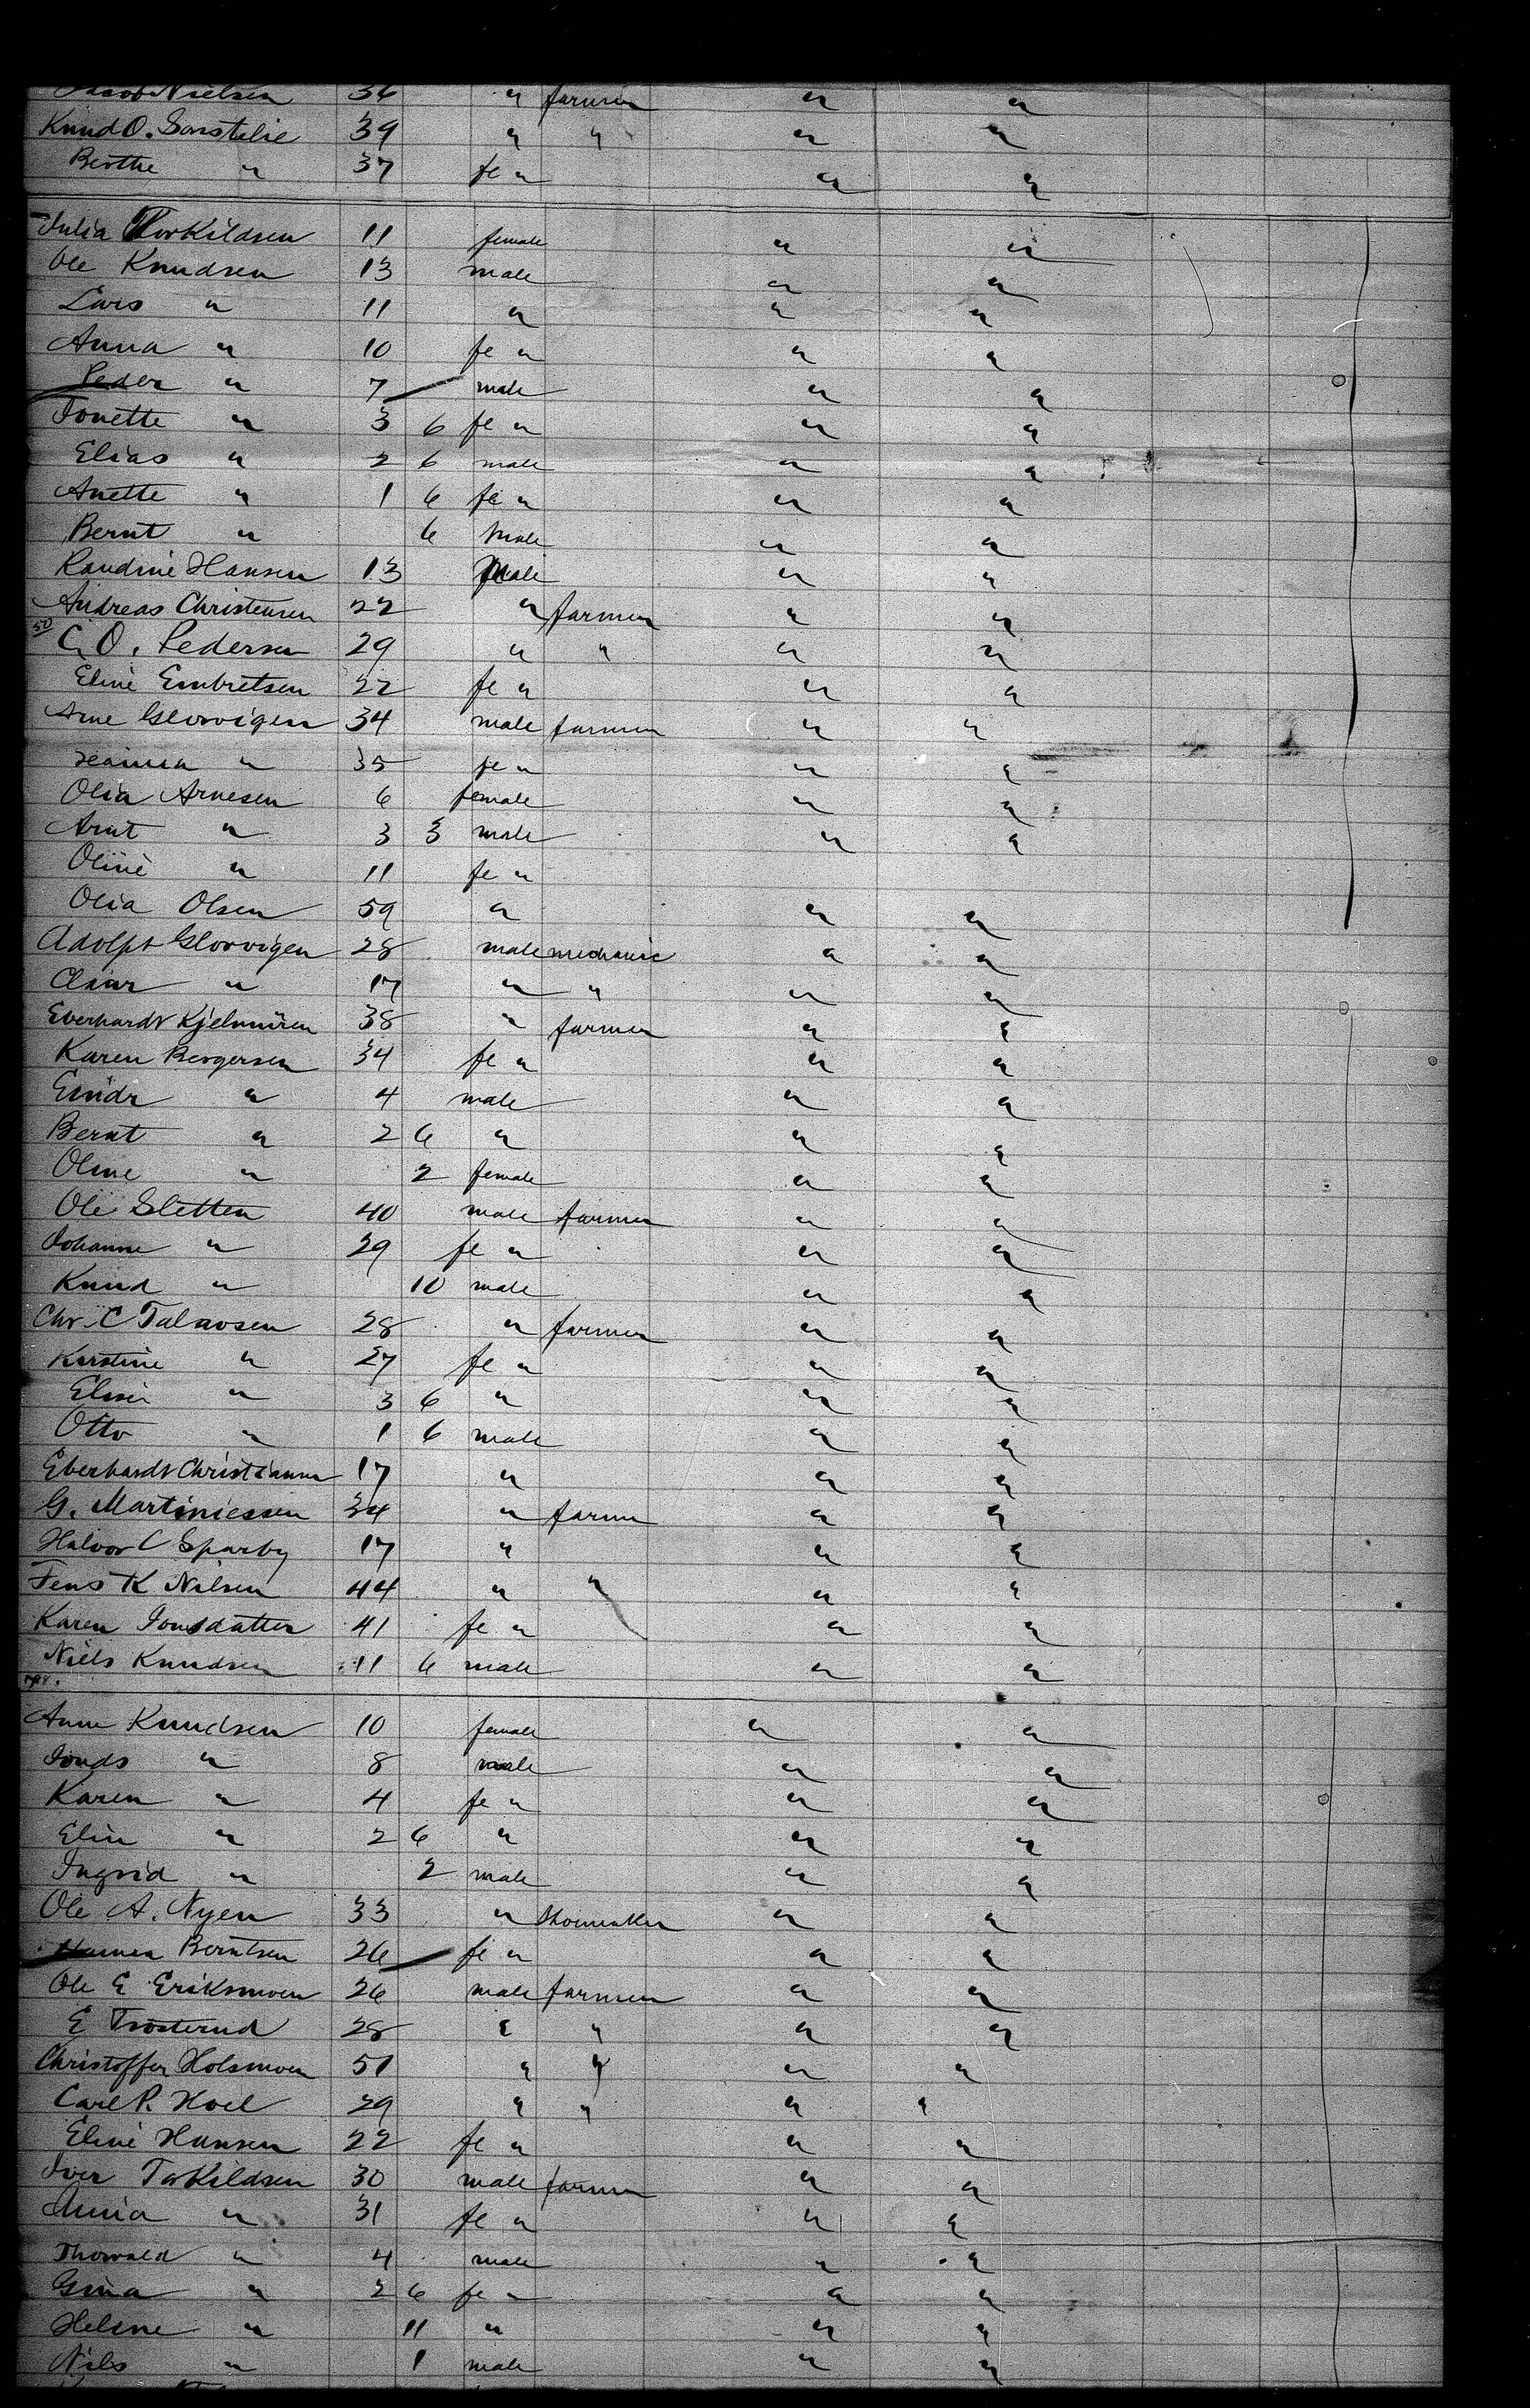 Jacob Nielsen 36 " farmer " "
Knud O. Sorstelie 39 " " " "
Berthe " 37 fe " " "
Julia Torkildsen 11 female " "
Ole Knudsen 13 male " "
Lars " 11 " " "
Anna " 10 fe " " "
Peder " 7 male " "
Jonette " 3 6 fe " " "
Elias " 2 6 male " "
Anette " 1 6 fe " " "
Bernt " 6 male " "
Randine Hansen 13 " "
Andreas Christensen 22 " farmer " "
50
C. O. Pedersen 29 " " " "
Eline Embretsen 22 fe " " "
Arne Glorvigen 34 male farmer " "
" 35 fe " " "
Olia Arnesen 6 female " "
Arnt " 3 3 male " "
Oline " 11 fe "
Olia Olsen 59 " " "
Adolph Glorvigen 28 male mechanic " "
" 17 " " " "
Eberhardt 38 " farmer " "
Karen Bergersen 34 fe " " "
Eindr " 4 male " "
Bernt " 2 6 " " "
Oline " 2 female " "
Ole Sletten 40 male farmer " "
Johanne " 29 fe " " "
Knud " 10 male " "
Chr. C 28 " farmer " "
Kirstine " 27 fe " " "
" 3 6 " " "
Otto " 1 6 male " "
Eberhardt Christiansen 17 " " "
G. Martiniessen 34 " farmer " "
Halvor C Sparby 17 " " "
Jens K Nilsen 44 " " " "
Karen Jonsdatter 41 fe " " "
Niels Knudsen 11 6 male " "
Anne Knudsen 10 female " "
" 8 male " "
Karen " 4 fe " " "
Elin " 2 6 " " "
Ingrid " 2 male " "
Ole A. Nyen 33 " Shoemaker " "
Berntsen 26 fe " " "
Ole E Eriksmoen 26 male farmer " "
E Trosterud 28 " " " "
Christoffer Holsmoen 51 " " " "
Carl P. Hoel 29 " " " "
Eline Hansen 22 fe " " "
Iver Torkildsen 30 male farmer " "
" 31 fe " " "
Thorvald " 4 male " "
Gina " 2 6 fe " " "
Helene " 11 " " "
Nils " 1 male " "